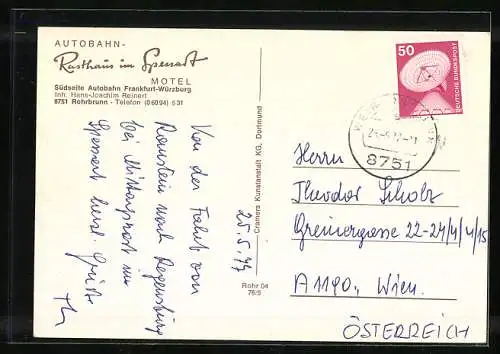 AUTOBAHN-
Rasthaus im Spessart
MOTEL
Südseite Autobahn Frankfurt-Würzburg
Inh. Hans-Joachim Reinert
8751 Rohrbrunn - Telefon (06094) 531
25.5.77
Von der Fahrt von
Ramstein nach Regensburg
bei Mittagsrast im
Spessart herzl. Grüße
Cramers Kunstanstalt KG, Dortmund
Rohr 04
76/5
50
DEUTSCHE BUNDESPOST
8751
Herrn
Theodor Scholz
Greinergasse 22-24/4/4/15
A1190, Wien.
ÖSTERREICH